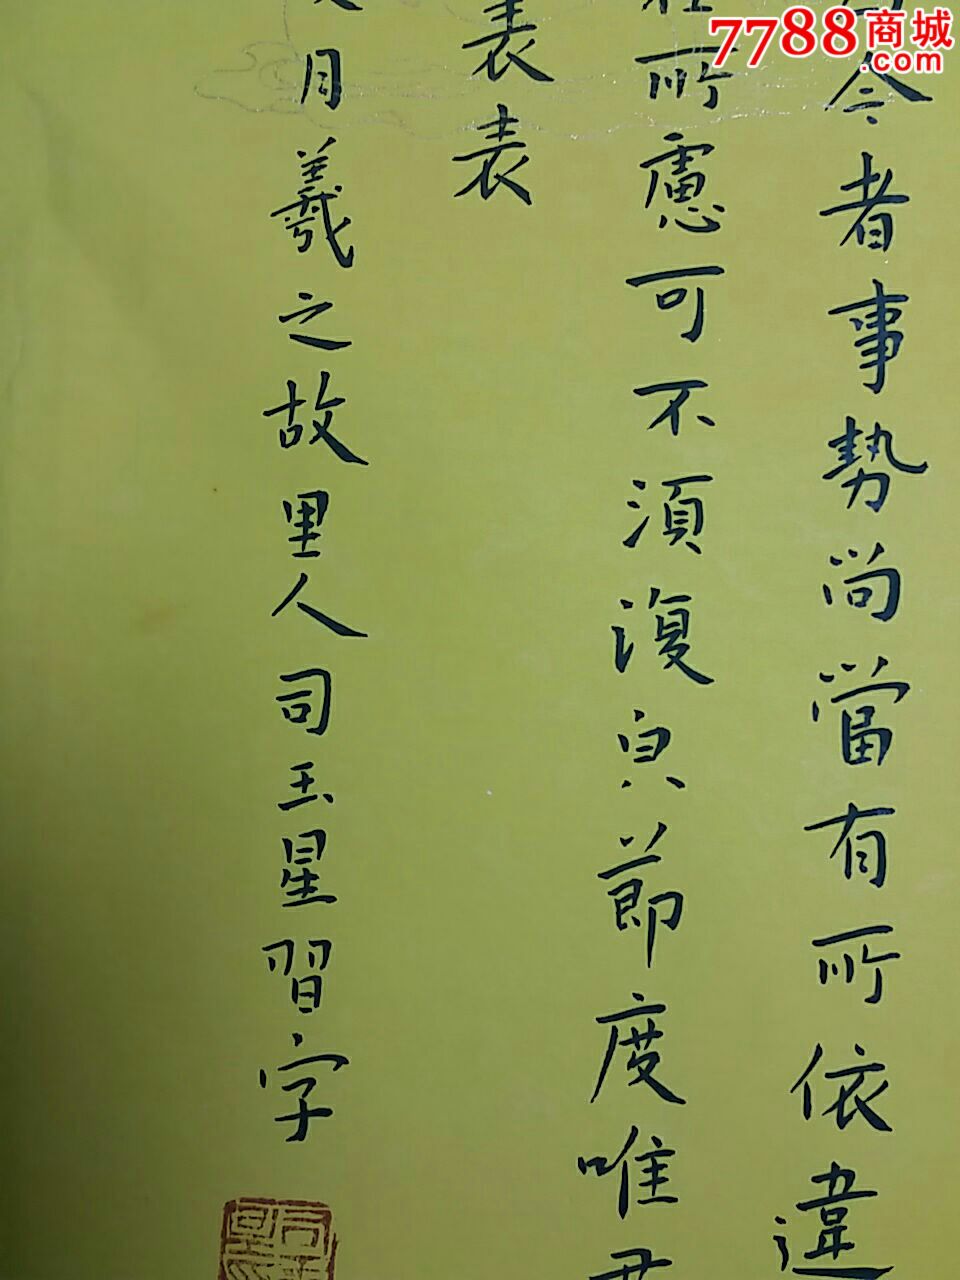 7788商城
.com
令者事勢尚當有所依違
所慮可不須復皃節度唯
表
表
月羲之故里人司玉星習字